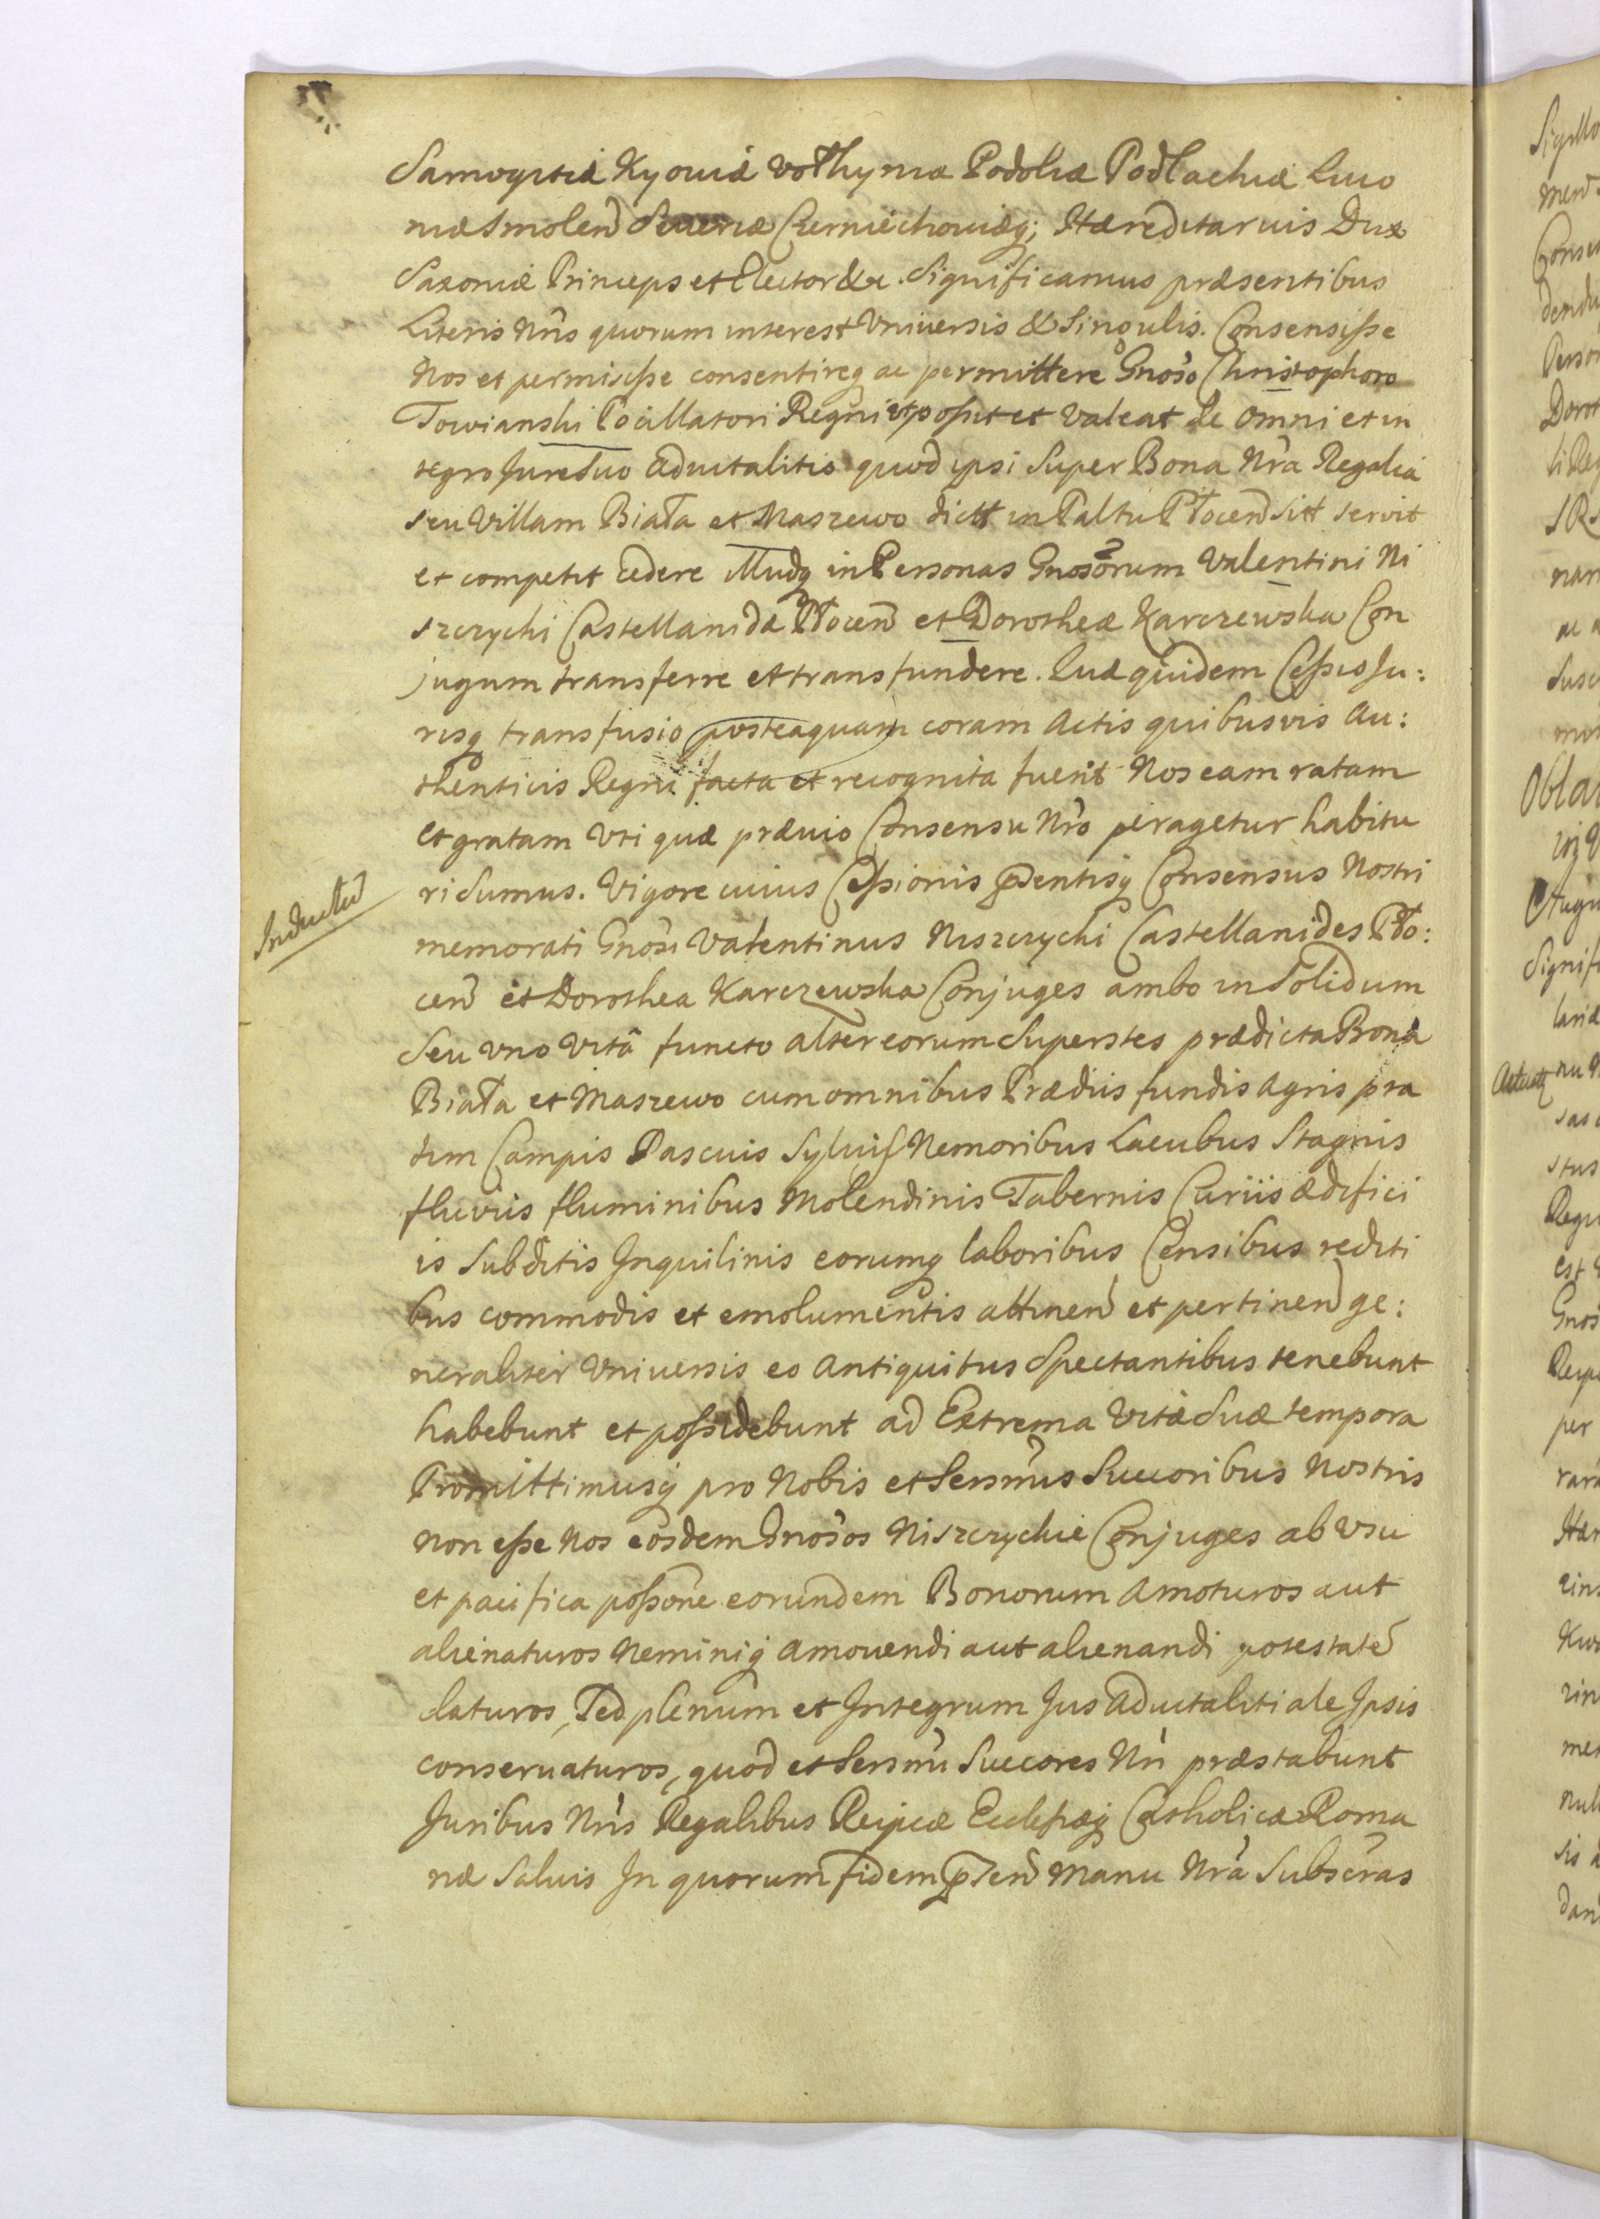 Samogitiæ Kyoviæ Vołhyniæ Podoliæ Podlachiæ Livo
niæ Smolen Severiæ Czerniechoviæq; Hæreditarius Dux
Saxoniæ Princeps et Elector &c. Significamus præsentibus
Literis Nris quorum interest Universis & Singulis. Consensisse
Nos et permisisse consentireq ac permittere Gnoso Christophoro
Towianski Pocillatori Regni ut possit et valeat de omni et in
tegro Jure Suo advitalitio quod ipsi Super Bona Nra Regalia
seu Villam Biała et Maszewo dictt in Paltu Płocen sitt servit
et competit cedere illudq in Personas Gnosorum Valentini Ni
szczycki Castellanidæ Płocen et Dorotheæ Karczewska Con
jugum transferre et transfundere. Quæ quidem Cessio Ju:
risq transfusio posteaquam coram Actis quibusvis Au:
thenticis Regni facta et recognita fuerit Nos eam ratam
et gratam Uti quæ prævio Consensu Nro peragetur habitu
ri Sumus. Vigore cuius Cessionis pñtisq Consensus Nostri
Inductu
memorati Gnosi Valentinus Niszczycki Castellanides Pło:
cen et Dorothea Karczewska Conjuges ambo in Solidum
Seu Uno Vitâ functo alter eorum Superstes prædicta Bona
Biała et Maszewo cum omnibus Prædiis fundis Agris pra
tim Campis Pascuis Sylvis Nemoribus Lacubus Stagnis
fluviis fluminibus Molendinis Tabernis Curiis ædifici
is Subditis Inquilinis eorumq laboribus Censibus rediti
bus commodis et emolumentis attinen et pertinen ge:
neraliter Universis eo Antiquitus Spectantibus tenebunt
habebunt et possidebunt ad Extrema Vitæ Suæ tempora
Promittimusq pro Nobis et Sersmis Succoribus Nostris
non esse Nos eosdem Gnosos Niszczyckie Conjuges ab Usu
et pacifica possone eorundem Bonorum Amoturos aut
alienaturos Neminiq Amovendi aut alienandi potestatẽ
daturos, Sed plenum et Integrum Jus Advitalitiale Ipsis
conservaturos, quod et Sersmi Succores Nri præstabunt
Juribus Nris Regalibus Reipcæ Ecclesiæq Catholicæ Roma
næ Salvis In quorum fidem pñsen Manu Nra Subscras